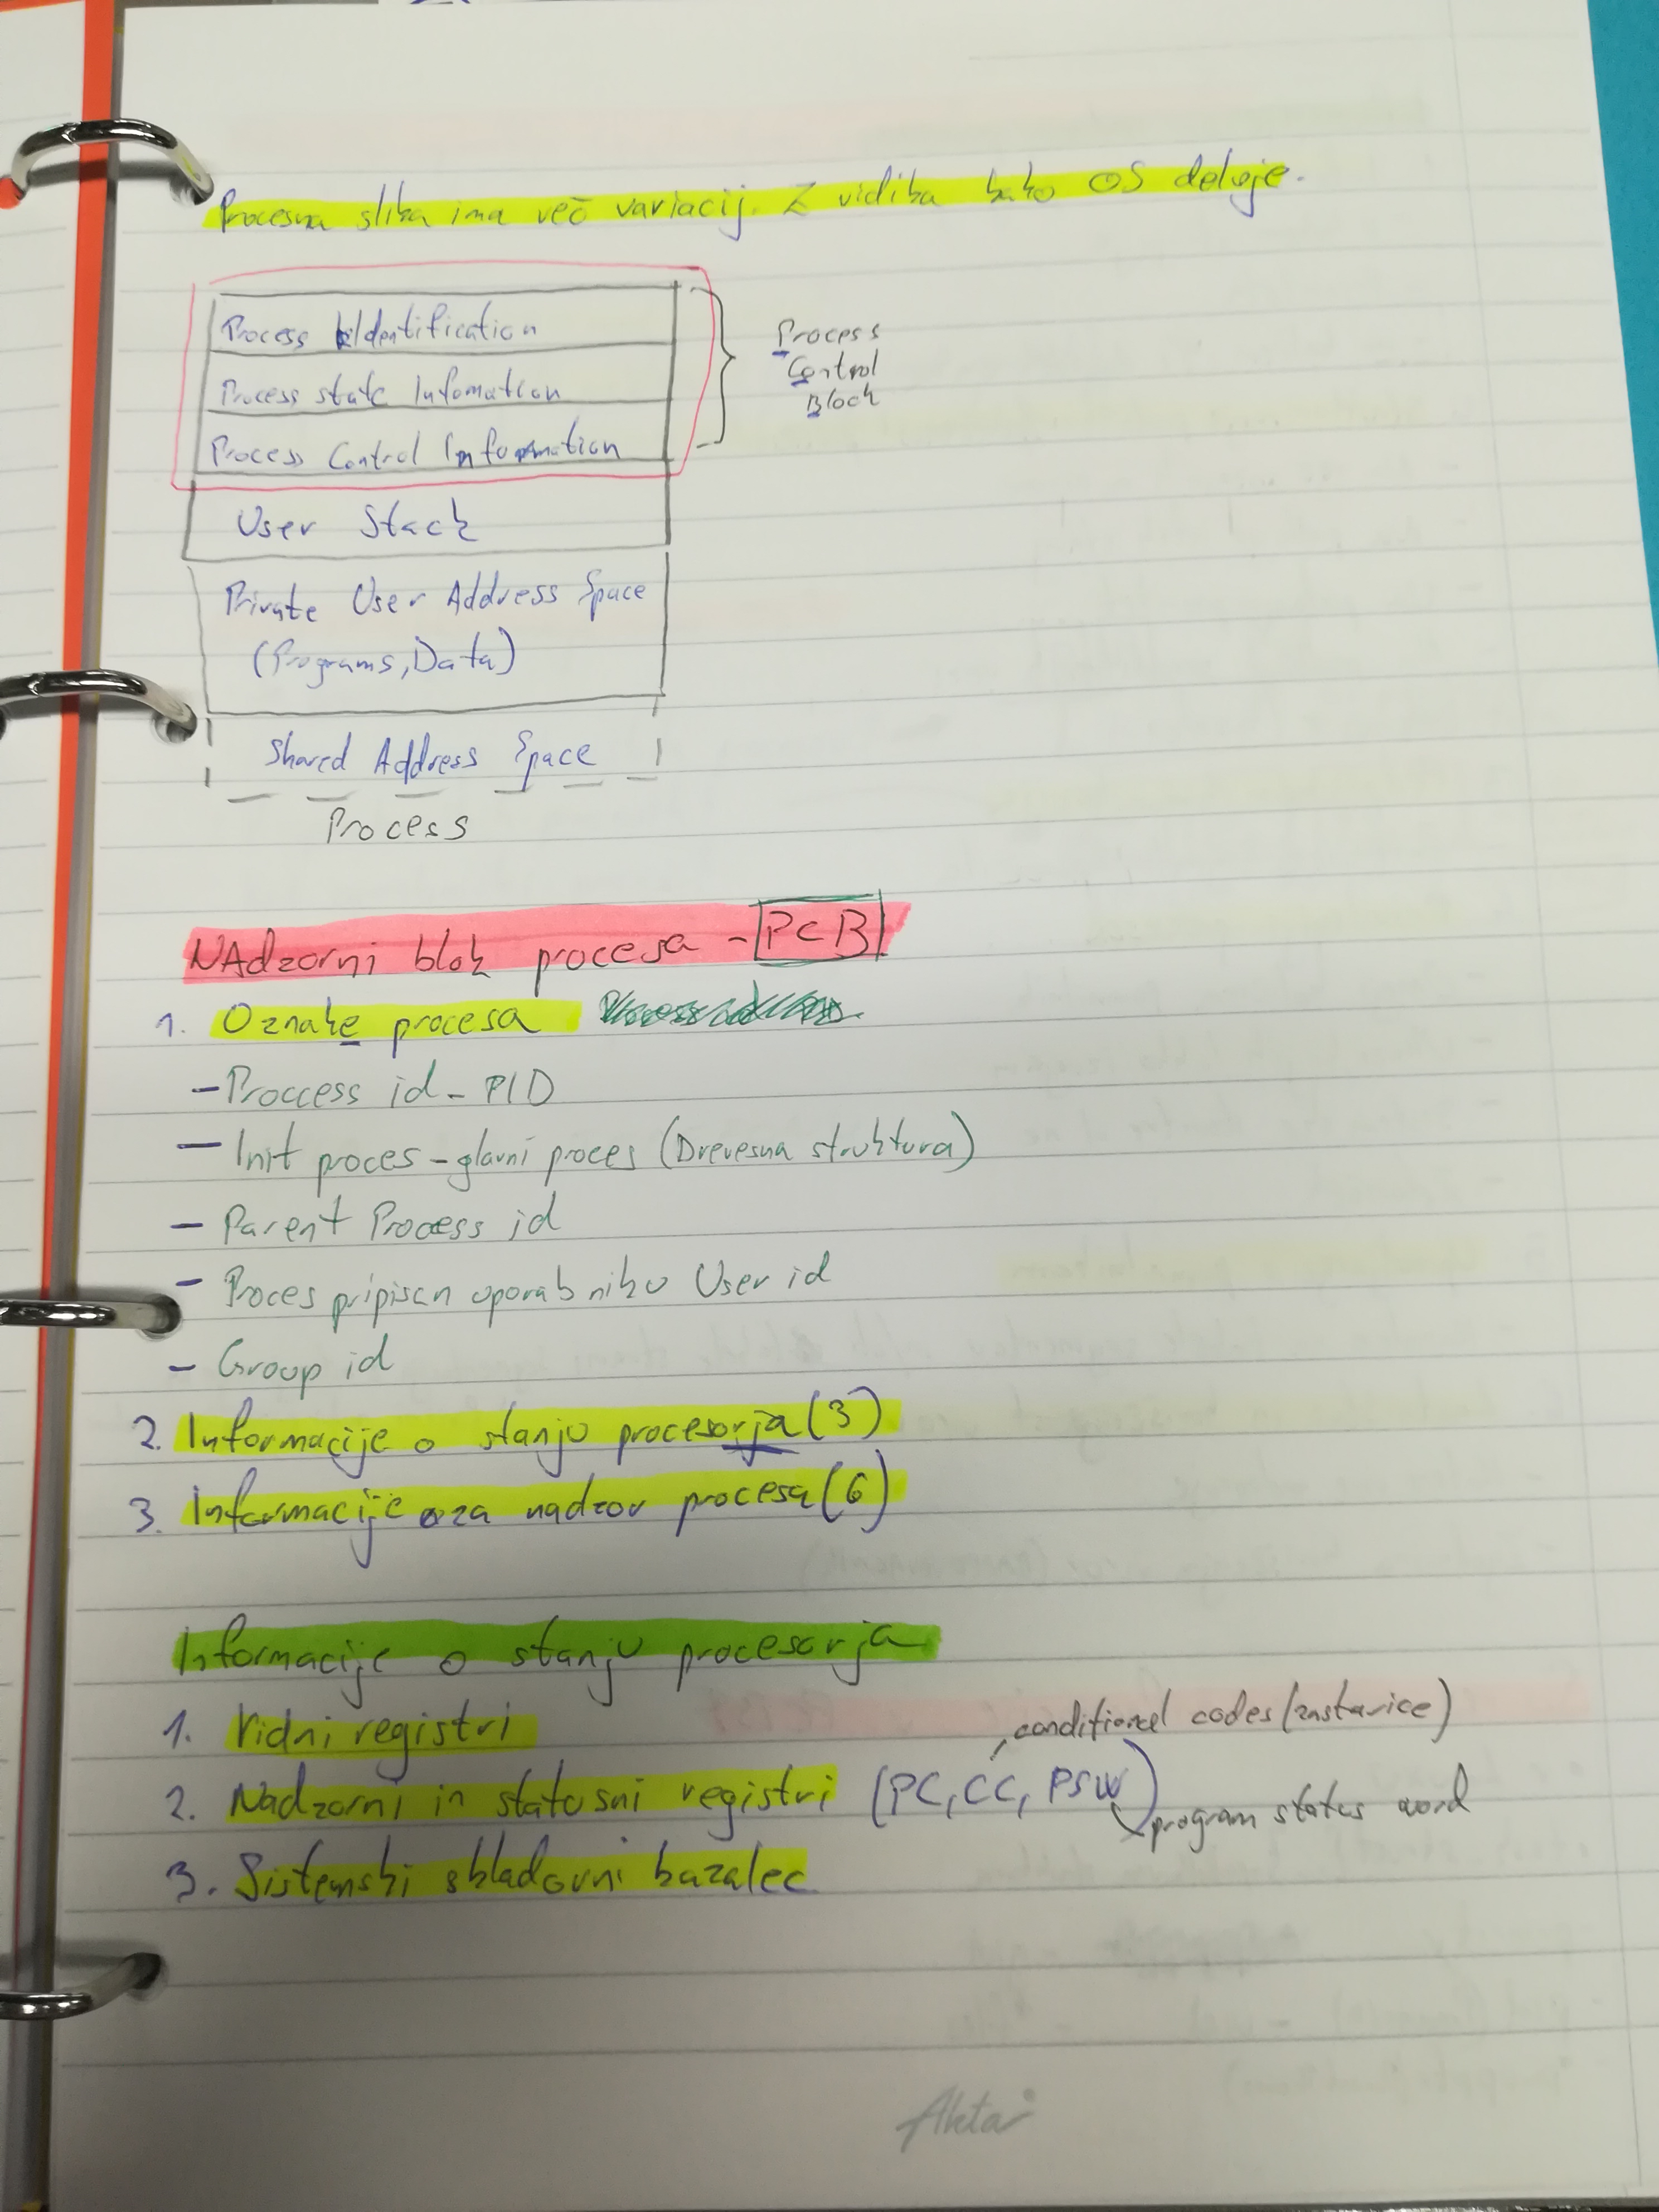 Procesna slika ima več variacij. Z vidika kako OS deluje.
Process Identification
Process state Infomation
Process Control Information
Process
Control
Block
User Stack
Private User Address Space
(Programs, Data)
Shared Address Space
Process
NAdzorni blok procesa - PCB
1. Oznake procesa
- Proccess id - PID
- Init proces - glavni proces (Drevesna struktura)
- Parent Process id
- Proces pripisan uporabniku User id
- Group id
2. Informacije o stanju procesorja (3)
3. Informacije za nadzor procesa (6)
Informacije o stanju procesorja
1. Vidni registri
conditional codes (zastavice)
2. Nadzorni in statusni registri (PC, CC, PSW)
program status word
3. Sistemski skladovni kazalec
Akta